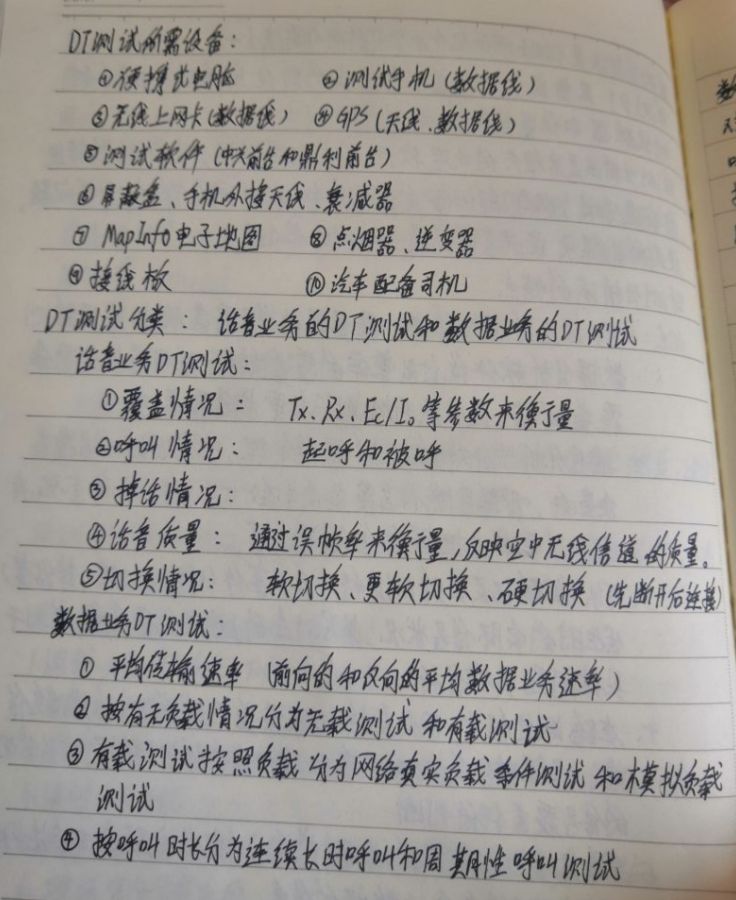 DT测试所需设备：
①便携式电脑 ②测试手机（数据线）
③无线上网卡（数据线） ④GPS（天线、数据线）
⑤测试软件（中兴前台和鼎利前台）
⑥屏蔽盒、手机外接天线、衰减器
⑦ MapInfo电子地图 ⑧点烟器、逆变器
⑨接线板 ⑩汽车配备司机
DT测试分类：话音业务的DT测试和数据业务的DT测试
话音业务DT测试：
①覆盖情况： Tx、Rx、Ec/Io等参数来衡量
②呼叫情况： 起呼和被呼
③掉话情况：
④话音质量： 通过误帧率来衡量，反映空中无线信道的质量。
⑤切换情况： 软切换、更软切换、硬切换（先断开后连接）
数据业务DT测试：
① 平均传输速率（前向的和反向的平均数据业务速率）
② 按有无负载情况分为无载测试和有载测试
③有载测试按照负载分为网络真实负载条件测试和模拟负载
测试
④ 按呼叫时长分为连续长时呼叫和周期性呼叫测试